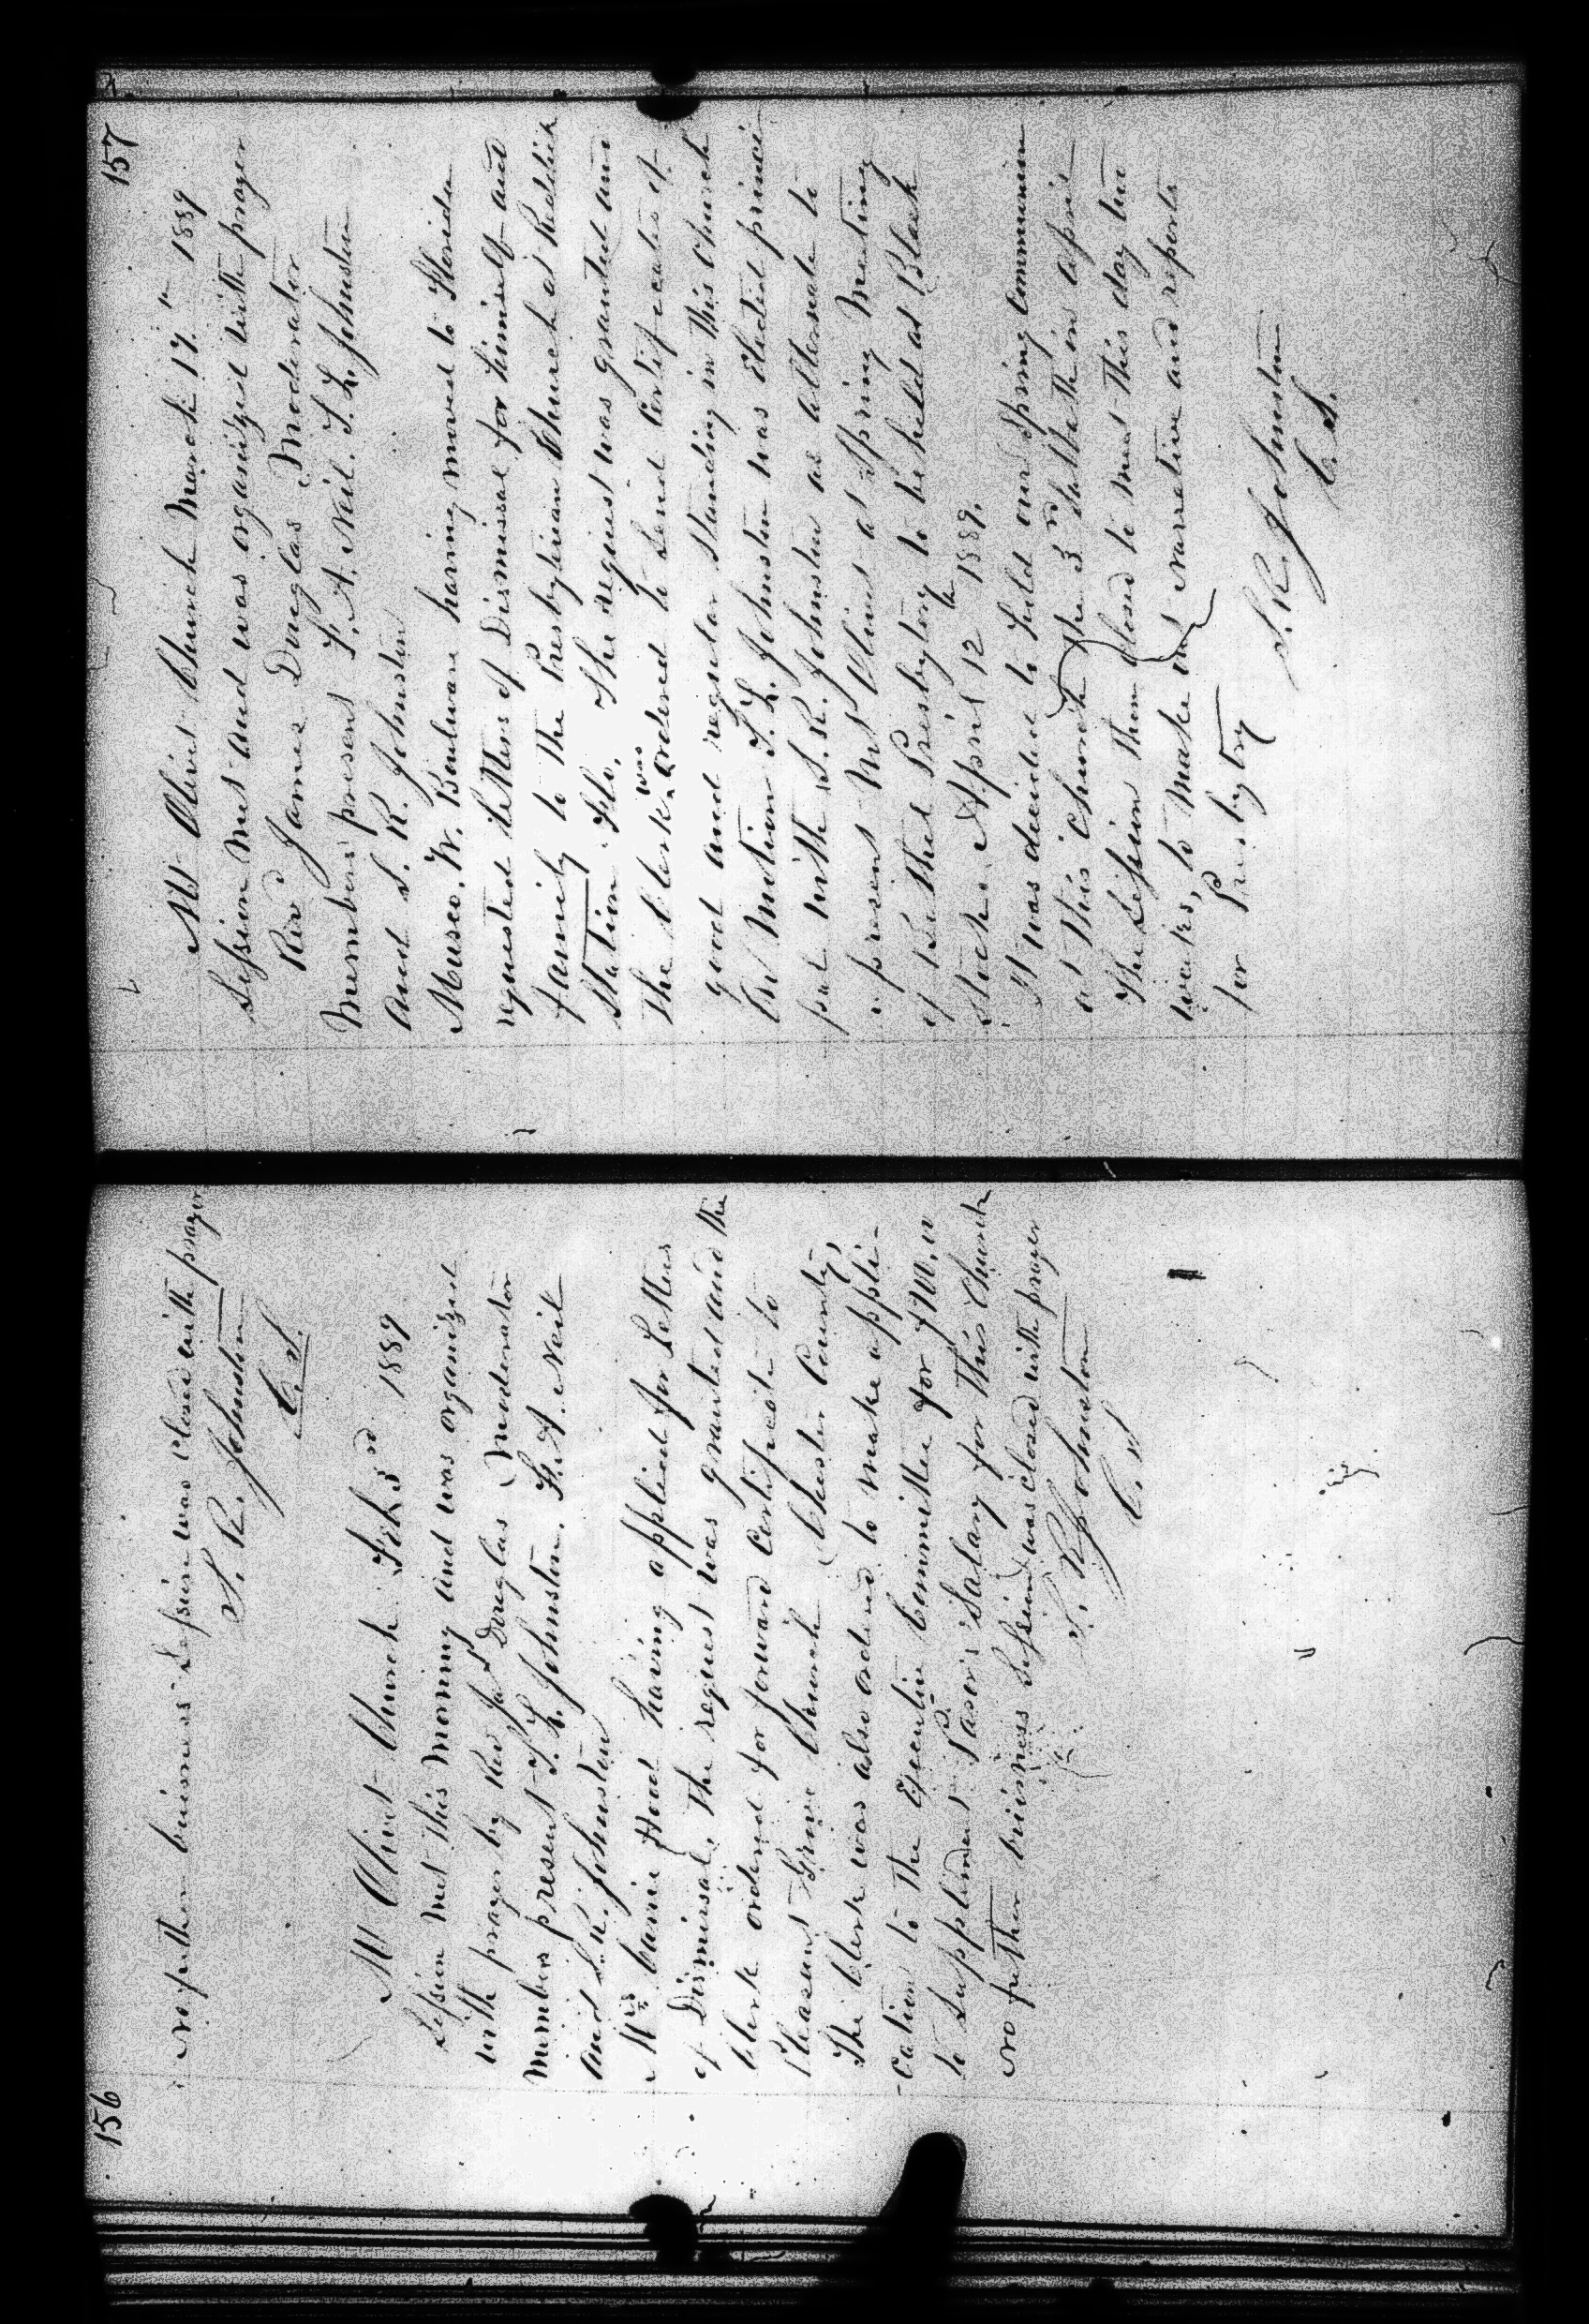 156
No futher business Session was closed with prayer
S. R. Johnston
C. S.
Mt Olivet Church Feb 3rd 1889
Session met this morning and was organized
with prayer by Rev Jas Douglas Moderator
Members present T. L. Johnston. F. A. Neil
and S. R. Johnston
Mrs Carrie Hood having applied for Letters
of Dismissal, The request was granted and the
Clerk ordered for forward Certificate to
Pleasant Grove Church Chester County,
The Clerk was also ordered to make appli-
-cation to the Executive Committee for
to Suppliment Pasor's Salary for This Church
No futher business Session was closed with prayer
S. R. Johnston
C. S
157
Mt Olivet Church March 17th 1889
Session met and was organized with prayer
Rev James Douglas Moderator
Members present F. A. Neil. T. L. Johnston
and S. R. Johnston
Musco. W. Boulware having moved to Florida
requested Letters of Dismissal for himself and
family to the Presbyterian Church at Reddick
Station Flo. The request was granted and
the Clerk was ordered to send Certificates of
good and regular standing in this Church
On Motion T. L. Johnston was elected princi-
pal with S. R. Johnston as alternate to
represent Mt Olivet at Spring Meeting
of Bethel Presbytery to be held at Black
Stocks April 12th 1889.
It was decided to hold our Spring Communion
at this Church the 3rd Sabbath in April
The Session then closed to meet this day two
weeks, to make out narrative and reports
for Presbytry
S. R. Johnston
C. S.